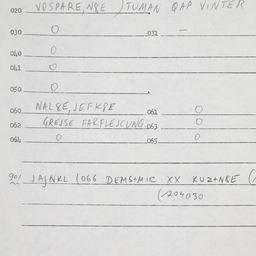 020 VDSPARE, N8E TUMAN QAP VINTER
030 O 032 —
040 O
041 O
050 O
060 NAL8E, JEFK8E 061 O
062 GREJSE FARFLEJCUNG 063 O
064 O 065 O
901 JAJNKL (066 DEMS+MIC XX KUZ+N8E
(204030